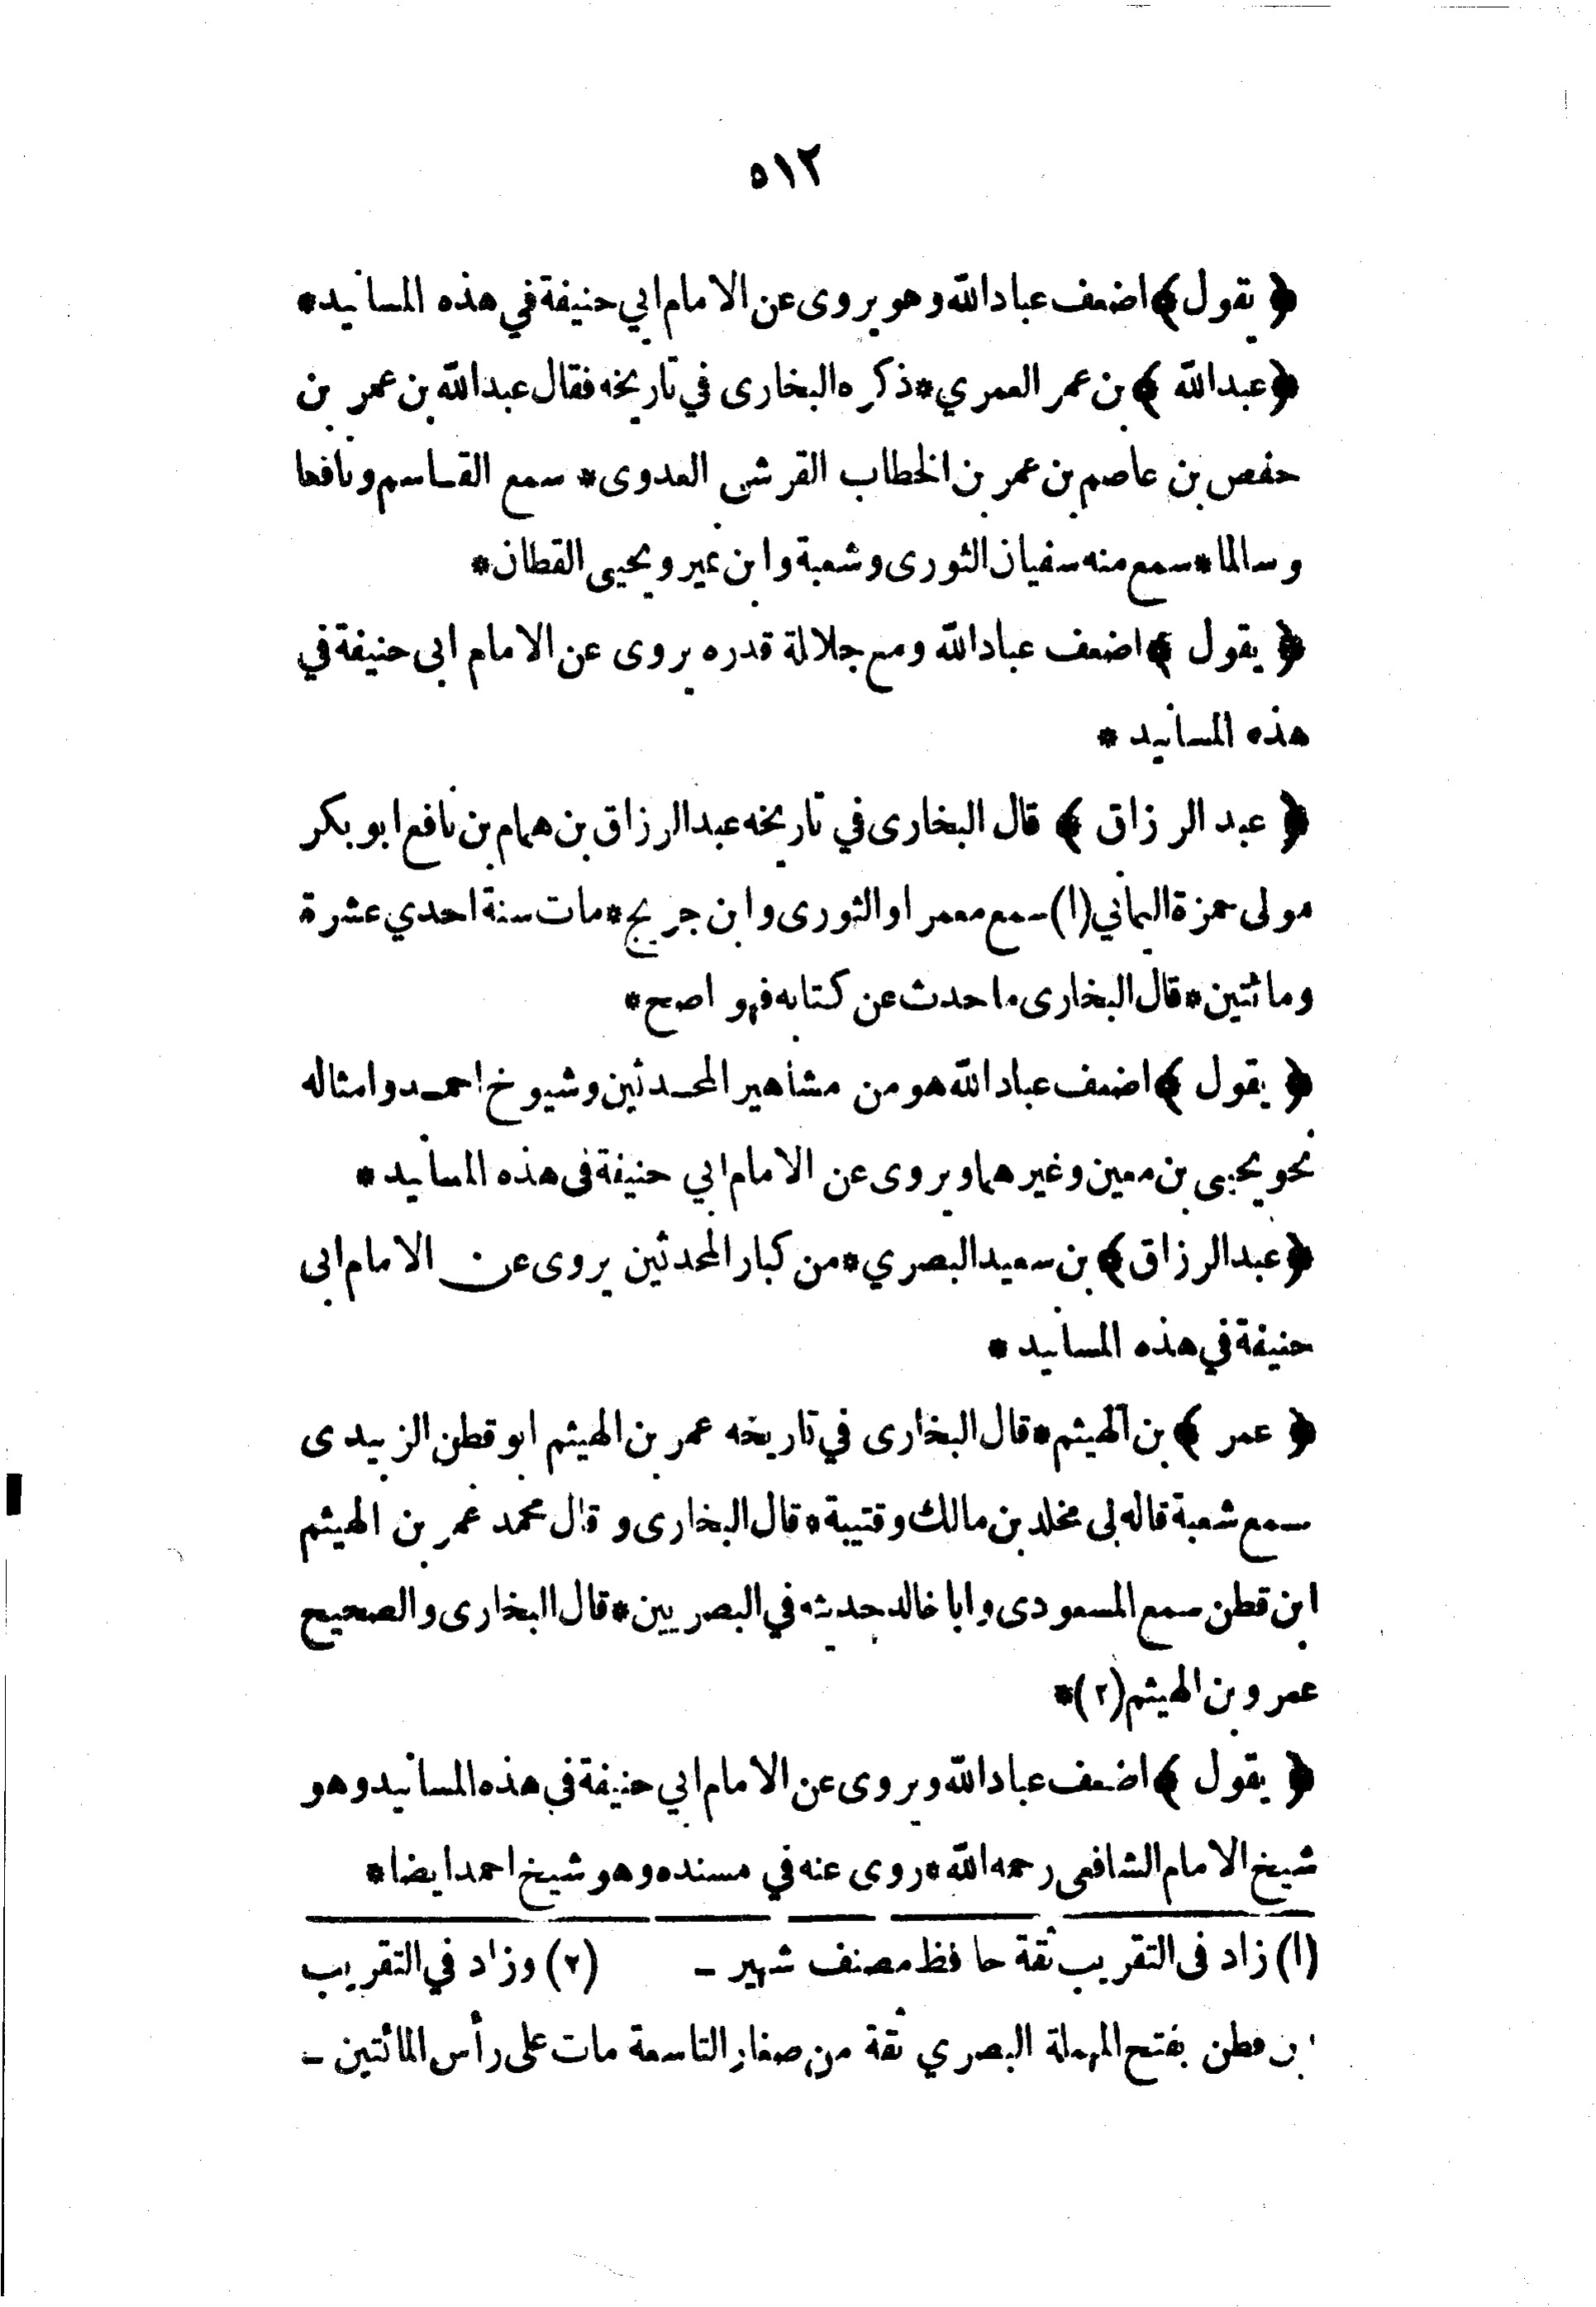 ٥١٢
﴿ يقول ﴾ اضعف عباد الله وهو يروى عن الامام ابي حنيفة في هذه المسانيد *
﴿ عبد الله ﴾ بن عمر العمري * ذكره البخارى في تاريخه فقال عبد الله بن عمر بن
حفص بن عاصم بن عمر بن الخطاب القرشى العدوى * سمع القاسم ونافعا
وسالما * سمع منه سفيان الثورى وشعبة وابن نمير ويحيى القطان *
﴿ يقول ﴾ اضعف عباد الله ومع جلالة قدره يروى عن الامام ابى حنيفة في
هذه المسانيد *
﴿ عبد الرزاق ﴾ قال البخارى في تاريخه عبد الرزاق بن همام بن نافع ابو بكر
مولى حمزة اليماني (١) سمع معمرا والثورى وابن جريج * مات سنة احدي عشرة
ومائتين * قال البخارى ما حدث عن كتابه فهو اصح *
﴿ يقول ﴾ اضعف عباد الله هو من مشاهير المحدثين وشيوخ احمد وامثاله
نحو يحيى بن معين وغيرهما ويروى عن الامام ابي حنيفة فى هذه المسانيد *
﴿ عبد الرزاق ﴾ بن سعيد البصري * من كبار المحدثين يروى عن الامام ابى
حنيفة في هذه المسانيد *
﴿ عمر ﴾ بن الهيثم * قال البخارى في تاريخه عمر بن الهيثم ابو قطن الزبيدى
سمع شعبة قاله لى مخلد بن مالك وقتيبة * قال البخارى وقال محمد عمر بن الهيثم
ابن قطن سمع المسعودى وابا خالد حديثه في البصريين * قال البخارى والصحيح
عمرو بن الهيثم (٢) *
﴿ يقول ﴾ اضعف عباد الله ويروى عن الامام ابي حنيفة في هذه المسانيد وهو
شيخ الامام الشافعى رحمه الله * روى عنه في مسنده وهو شيخ احمد ايضا *
(١) زاد فى التقريب ثقة حافظ مصنف شهير ـ (٢) وزاد في التقريب
ابن قطن بفتح المهملة البصري ثقة من صغار التاسعة مات على رأس المائتين ـ